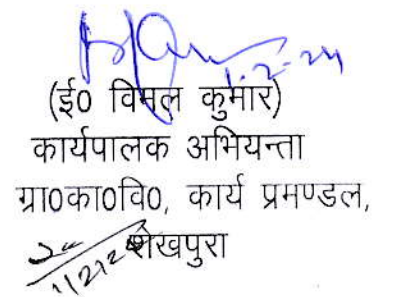 1.2.24
(ई0 विमल कुमार)
कार्यपालक अभियन्ता
ग्रा0का0वि0, कार्य प्रमण्डल,
शेखपुरा
1/2/24